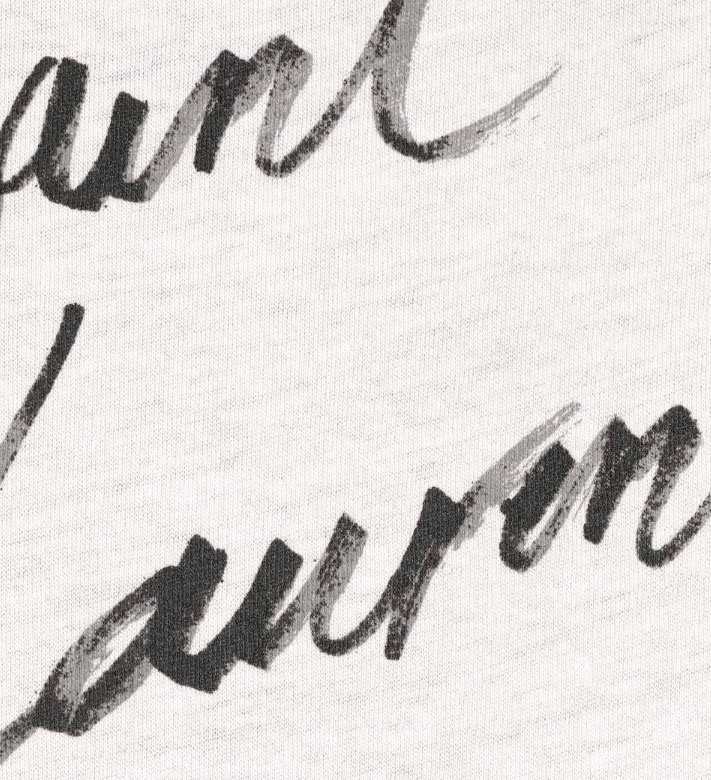 aint
auren